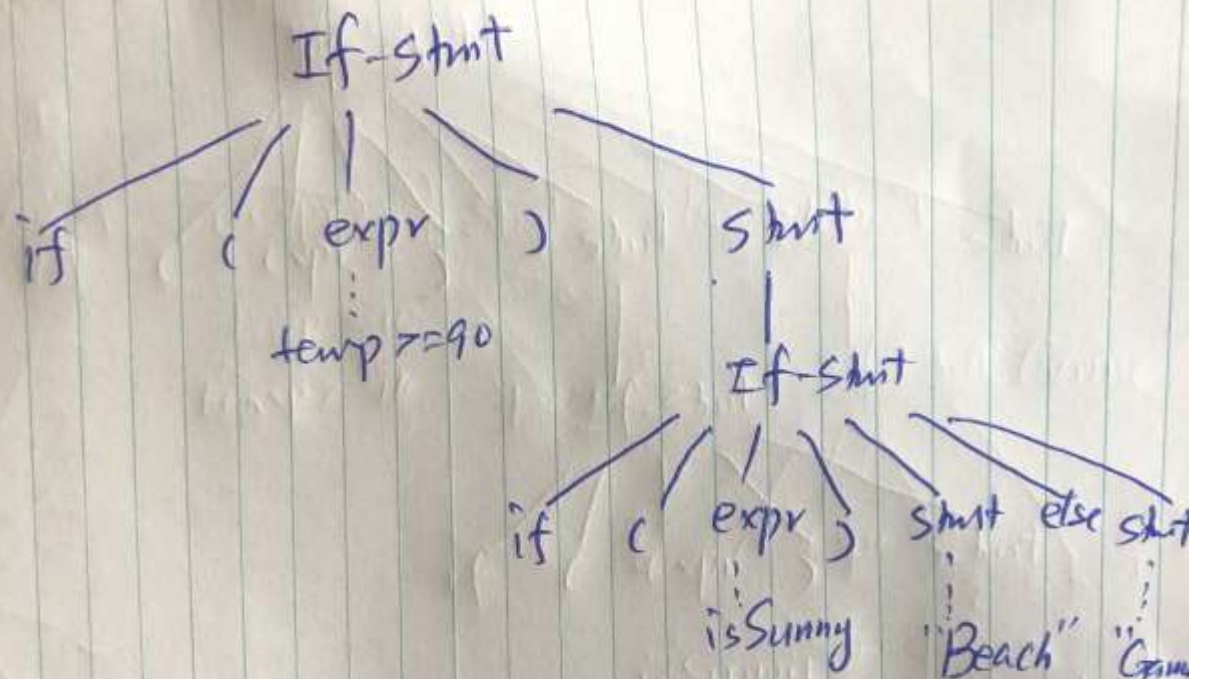 If-stmt
if ( expr ) stmt
temp >=90
If-stmt
if ( expr ) stmt else stmt
isSunny "Beach"